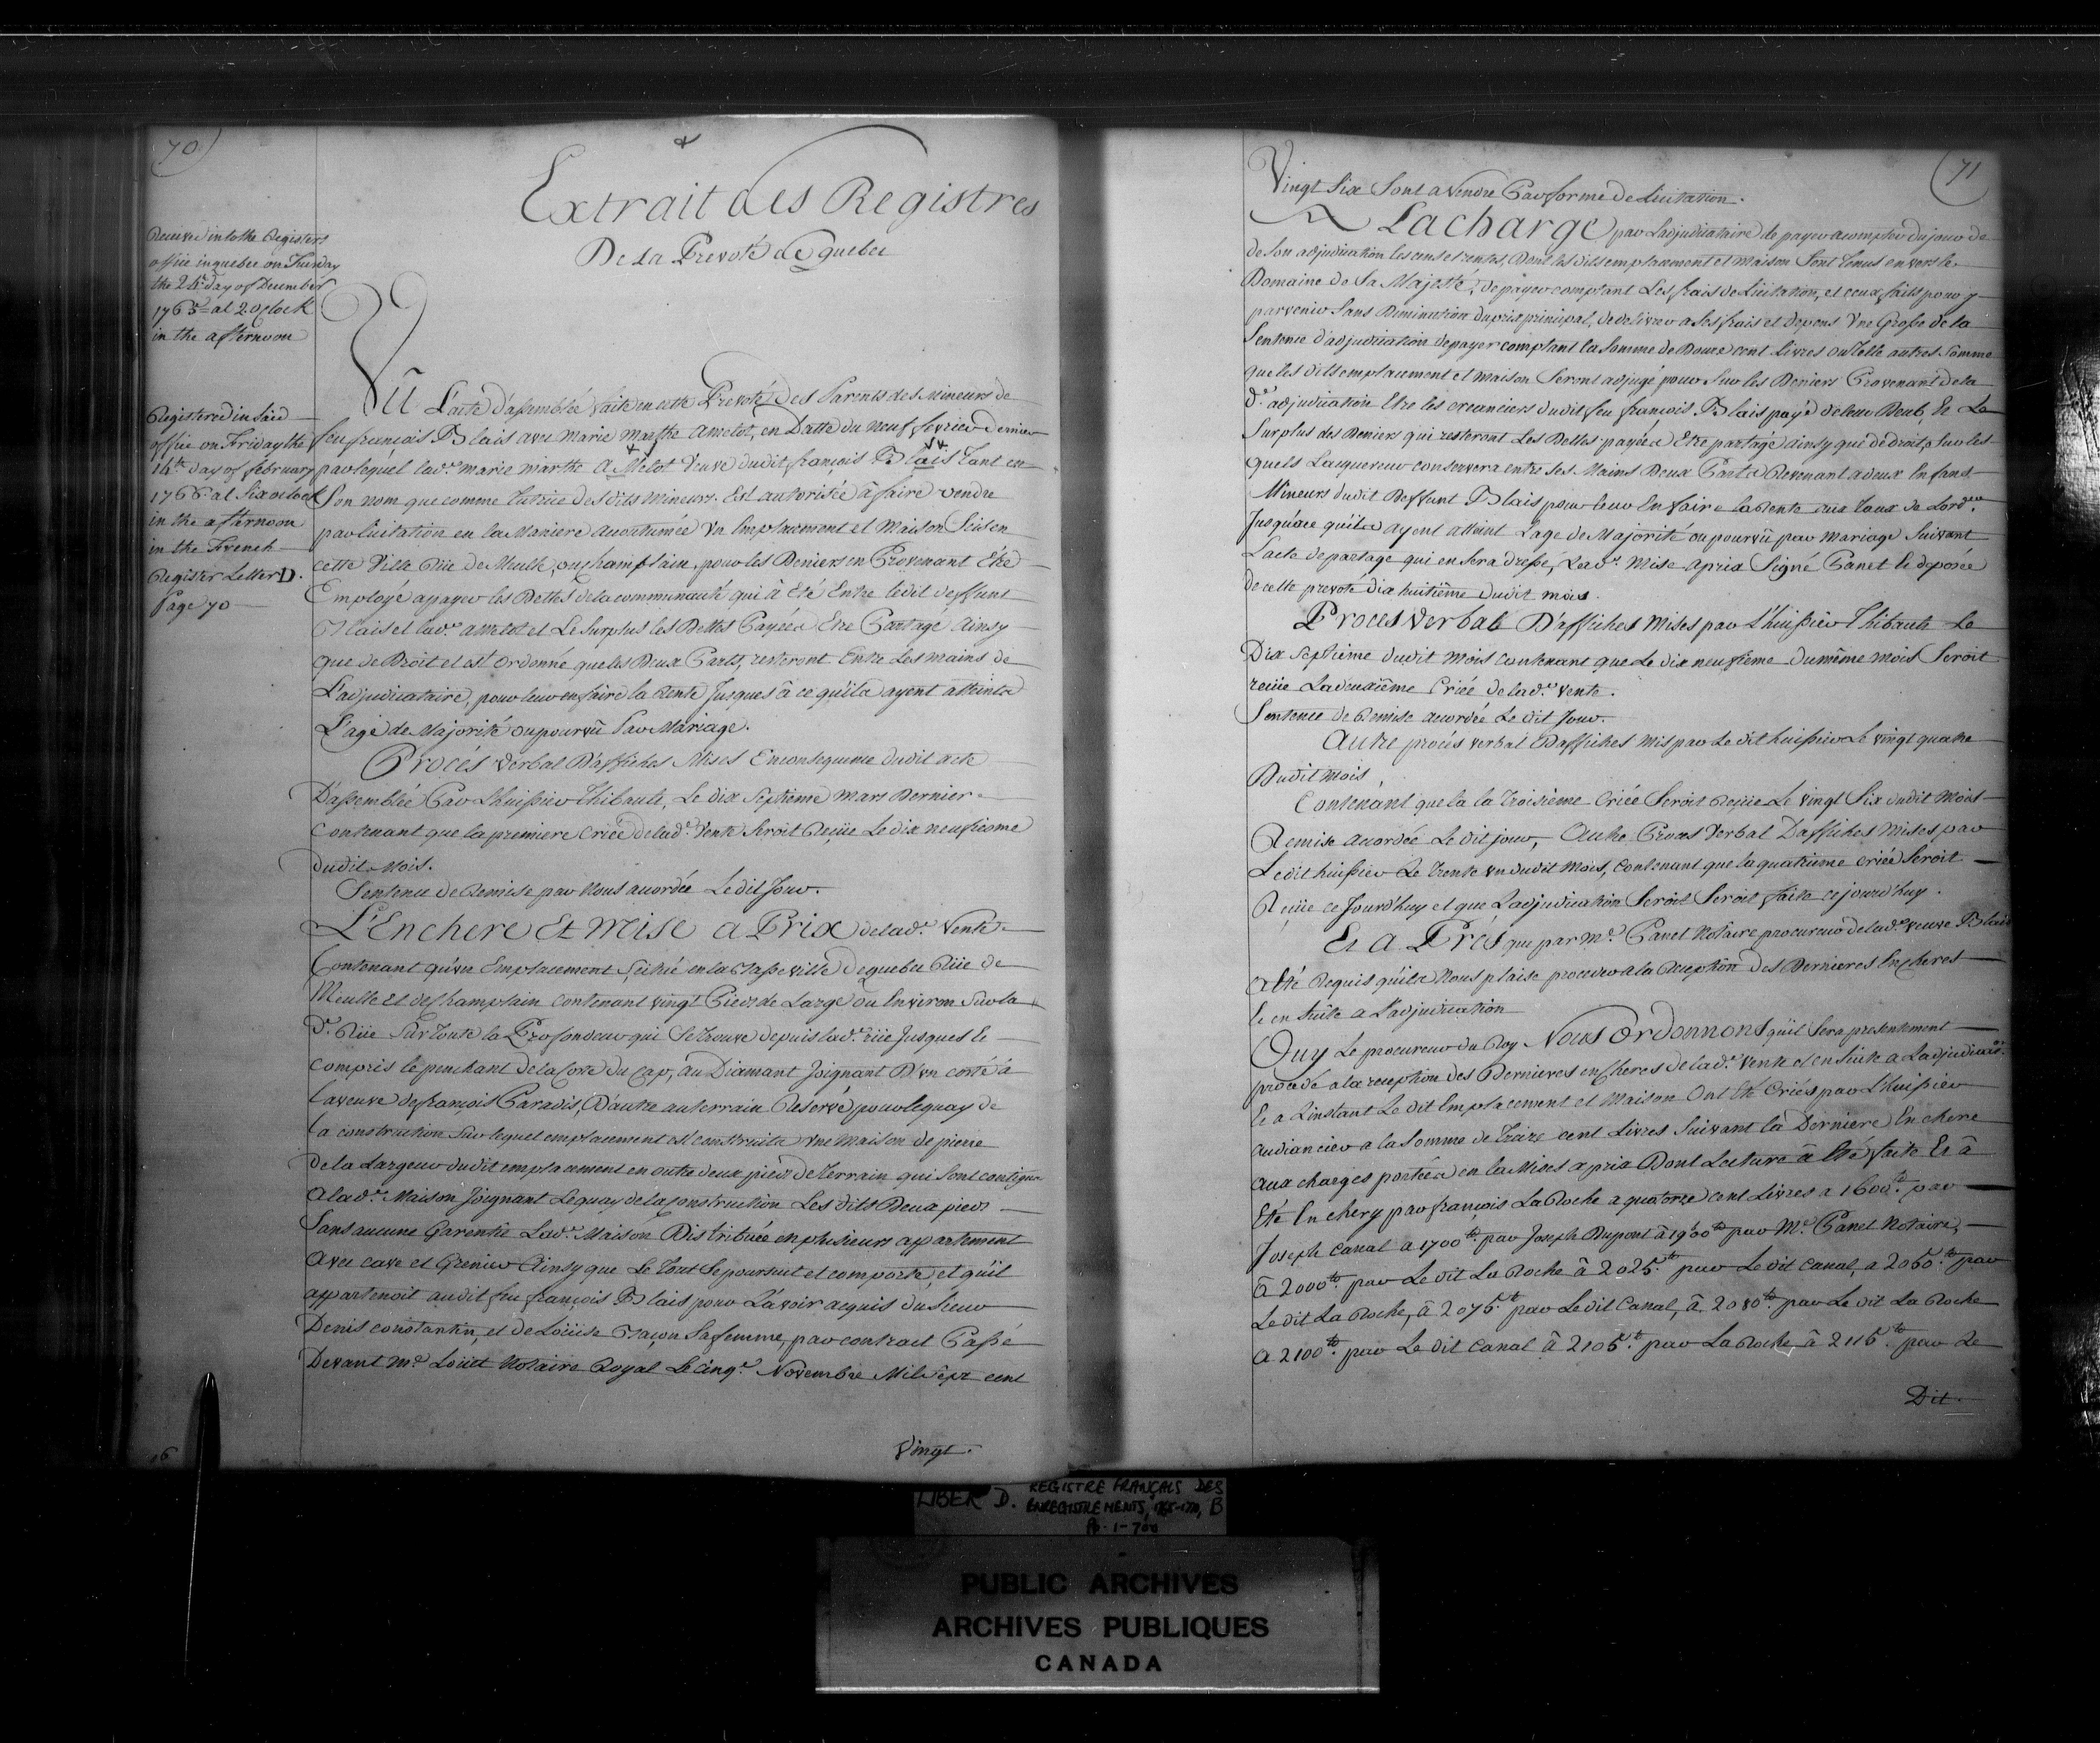 70
Extrait des Registres
De la Prevoté de Quebec
Received into the Registers
office in quebec on Tuesday
the 24th day of December
1765 at 2 oClock
in the afternoon
Registered in Said
office on Friday the
14th day of february
1766 at Six oclock
in the afternoon
in the French
Register Letter D.
Page 70
Vû L'acte d'assemblée faite en cette Prevoté des Parents des Mineurs de
feu françois Blais avec Marie Marthe Amelot, en Datte du neuf fevrier dernier
par lequel lad.e Marie Marthe Amelot Veuve dudit françois Blais tant en
Son nom que comme tutrice des dits Mineurs. Est autorisée à faire vendre
par licitation en la Maniere accoutumée un Emplacement et Maison Scis en
cette Ville Rüe De Meulle, ou champlain, pour les Deniers en Provenant Etre
Employé a payer les Dettes de la communauté qui à Eté Entre ledit deffunt
Blais et lad.e amelot et Le Surplus les Dettes Payées Etre Partagé Ainsy
que de Droit et est ordonné que les Deux Parts, resteront Entre Les mains de
L'adjudicataire, pour leur en faire la Rente Jusques à ce qu'ils ayent atteints
L'age de Majorité ou pourvû Par Mariage.
Procés verbal D'affiches Mises En consequence dudit acte
D'assemblée Par L'huissier Thibault, Le dix Septieme Mars Dernier
Contenant que la premiere Criée de lad.e Vente Seroit Reçüe Le dix neufieme
dudit Mois.
Sentence de Remise par Nous accordée Le dit Jour.
L'Enchere Et Mise a Prix de lad.e Vente
Contenant qu'un Emplacement Scitué en la Basse ville de quebec Rüe de
Meulle et de Champlain contenant vingt Pieds de Large ou Environ Sur la
d.e Rüe Sur toute la Profondeur qui Se trouve depuis lad.e rüe Jusques Et
Compris le penchant de la Coste du Cap, au Diamant Joignant D'un costé à
la veuve de françois Paradis, D'autre au terrain Reservé pour le quay de
la construction Sur lequel emplacement est construite une Maison de pierre
de la Largeur dudit emplacement en outre deux pieds de terrain qui Sont contigu
a lad.e Maison Joignant Le quay de la construction Les dits Deux pieds
Sans aucune Garentie Lad.e Maison Distribuée en plusieurs appartement
Avec cave et Grenier Ainsy que Le tout Se poursuit et comporte, et qu'il
appartenoit audit feu françois Blais pour L'avoir acquis du Sieur
Denis constantin, et de Loüise Maçon Sa femme, par contract Passé
Devant M.e Loüet Notaire Royal Le cinq.e Novembre Mil Sept cent
Vingt.
71
Vingt Six Sont a Vendre Par forme de Licitation.
A La charge par L'adjudicataire de payer a compter du jour de
de Son adjudication les cens et rentes, Dont les dits emplacement et Maison Sont tenus envers le
Domaine de Sa Majesté, de payer comptant Les frais de Licitation, et ceux faits pour y
parvenir Sans Diminution du prix principal, de delivrer a Ses frais et depens Une Grosse de la
Sentence d'adjudication de payer comptant la Somme de Douze cent Livres ou Telle autres Somme
que les dits emplacement et maison Seront adjugé pour Sur les Deniers Provenant de la
d.e adjudication Etre les creanciers dudit feu françois Blais payé de leur Deub, Et Le
Surplus des Deniers qui resteront Les Dettes payées Etre partagé ainsy que de droit, Sur les
quels L'acquereur conservera entre Ses Mains Deux Parts Revenant a deux Enfans
Mineurs dudit Deffunt Blais pour leur En faire la Rente aux taux de L'ord.ce
Jusqu'a ce qu'ils ayent atteint L'age de Majorité ou pourvû par Mariage Suivant
L'acte de partage qui en Sera dressé, Lad.e Mise a prix Signé Panet Et deposée
de cette prevoté dix huitième dudit mois.
Procés Verbal D'affiches Mises par L'huissier Thibault Le
Dix Septième dudit Mois contenant que Le dix neufième du même Mois Seroit
recüe La deuxième Criée de lad.e Vente.
Sentence de Remise accordée Le dit Jour.
Autre procés verbal D'affiches Mis par Le dit huissier Le vingt quatre
Dudit Mois
Contenant que la la troisième Criée Seroit Reçüe Le vingt Six dudit Mois
Remise accordée Le dit jour, Autre Procés Verbal D'affiches Mises par
Le dit huissier Le trente un dudit Mois, Contenant que la quatrième criée Seroit
Reçüe ce Jourd'huy et que L'adjudication Seroit Seroit faite ce jourd'huy.
Et A Prés que par M.e Panet Notaire procureur de lad.e veuve Blais
a Eté Requis qu'il Nous plaise proceder a la Reception des Dernieres Encheres
Et en Suite a L'adjudication
Ouy Le procureur du Roy Nous Ordonnons qu'il Sera presentement
procedé a la reception des Dernieres encheres de lad.e Vente et en Suite a L'adjudica.on
Et a L'instant Le dit Emplacement et Maison Ont Eté Criés par L'huissier
audiancier a la Somme de treize cent Livres Suivant la Derniere Enchere
aux charges portées en la Mises a prix Dont Lecture à Eté faite Et à
Eté Enchery par françois La Roche a quatorze cent Livres a 1600.tt par
Joseph Canal a 1700.tt par Joseph Dupont à 1900.tt par M.e Panet Notaire,
à 2000.tt par Le dit La Roche à 2025.tt par Le dit Canal, a 2050.tt par
Le dit La Roche, à 2075.tt par Le dit Canal, à 2080.tt par Le dit La Roche
a 2100.tt par Le dit Canal à 2105.tt par La Roche à 2115.tt par Le
Dit.
LIBER D. REGISTRE FRANÇAIS DES
ENREGISTREMENTS, B
Pp. 1-700
PUBLIC ARCHIVES
ARCHIVES PUBLIQUES
CANADA